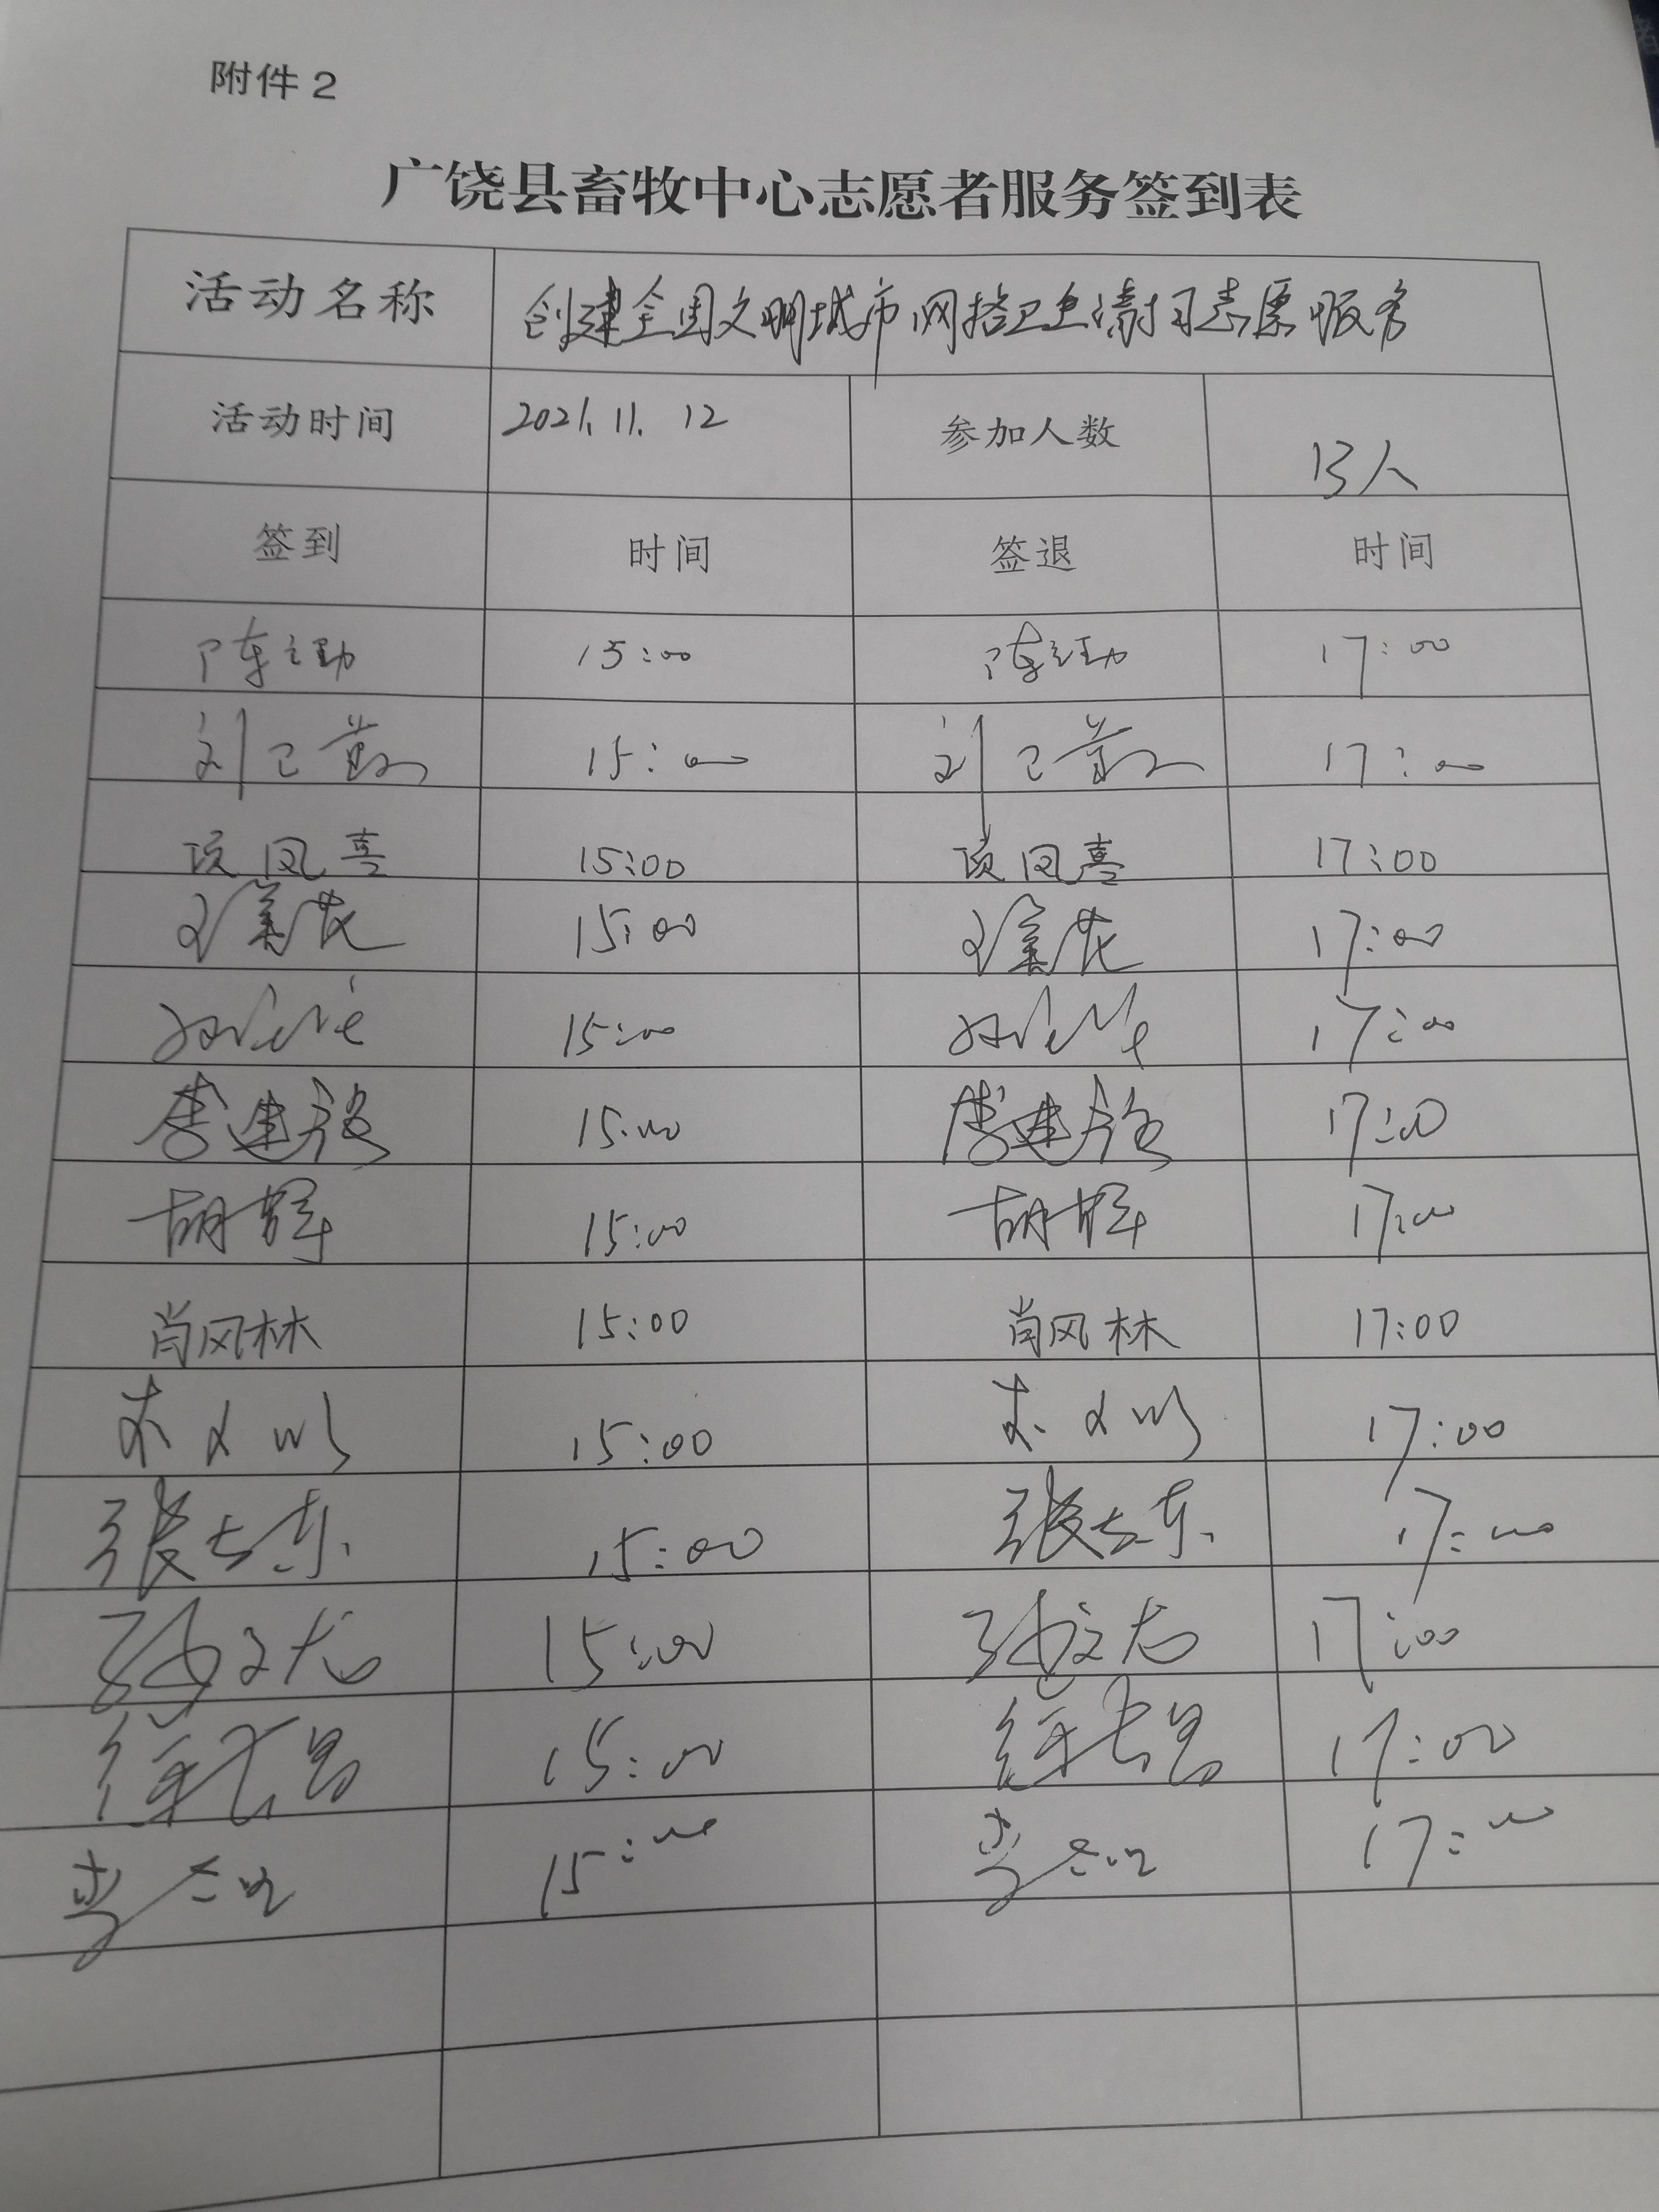 附件2
广饶县畜牧中心志愿者服务签到表
活动名称 创建全国文明城市网格卫生清扫志愿服务
活动时间 2021.11.12 参加人数 13人
签到 时间 签退 时间
陈主勤 15:00 陈主勤 17:00
刘卫 15:00 刘卫 17:00
项凤喜 15:00 项凤喜 17:00
15:00 17:00
15:00 17:00
李建 15:00 李建 17:00
胡辉 15:00 胡辉 17:00
肖风林 15:00 肖风林 17:00
15:00 17:00
张士东 15:00 张士东 17:00
15:00 17:00
徐长 15:00 徐长 17:00
李 15:00 李 17:00